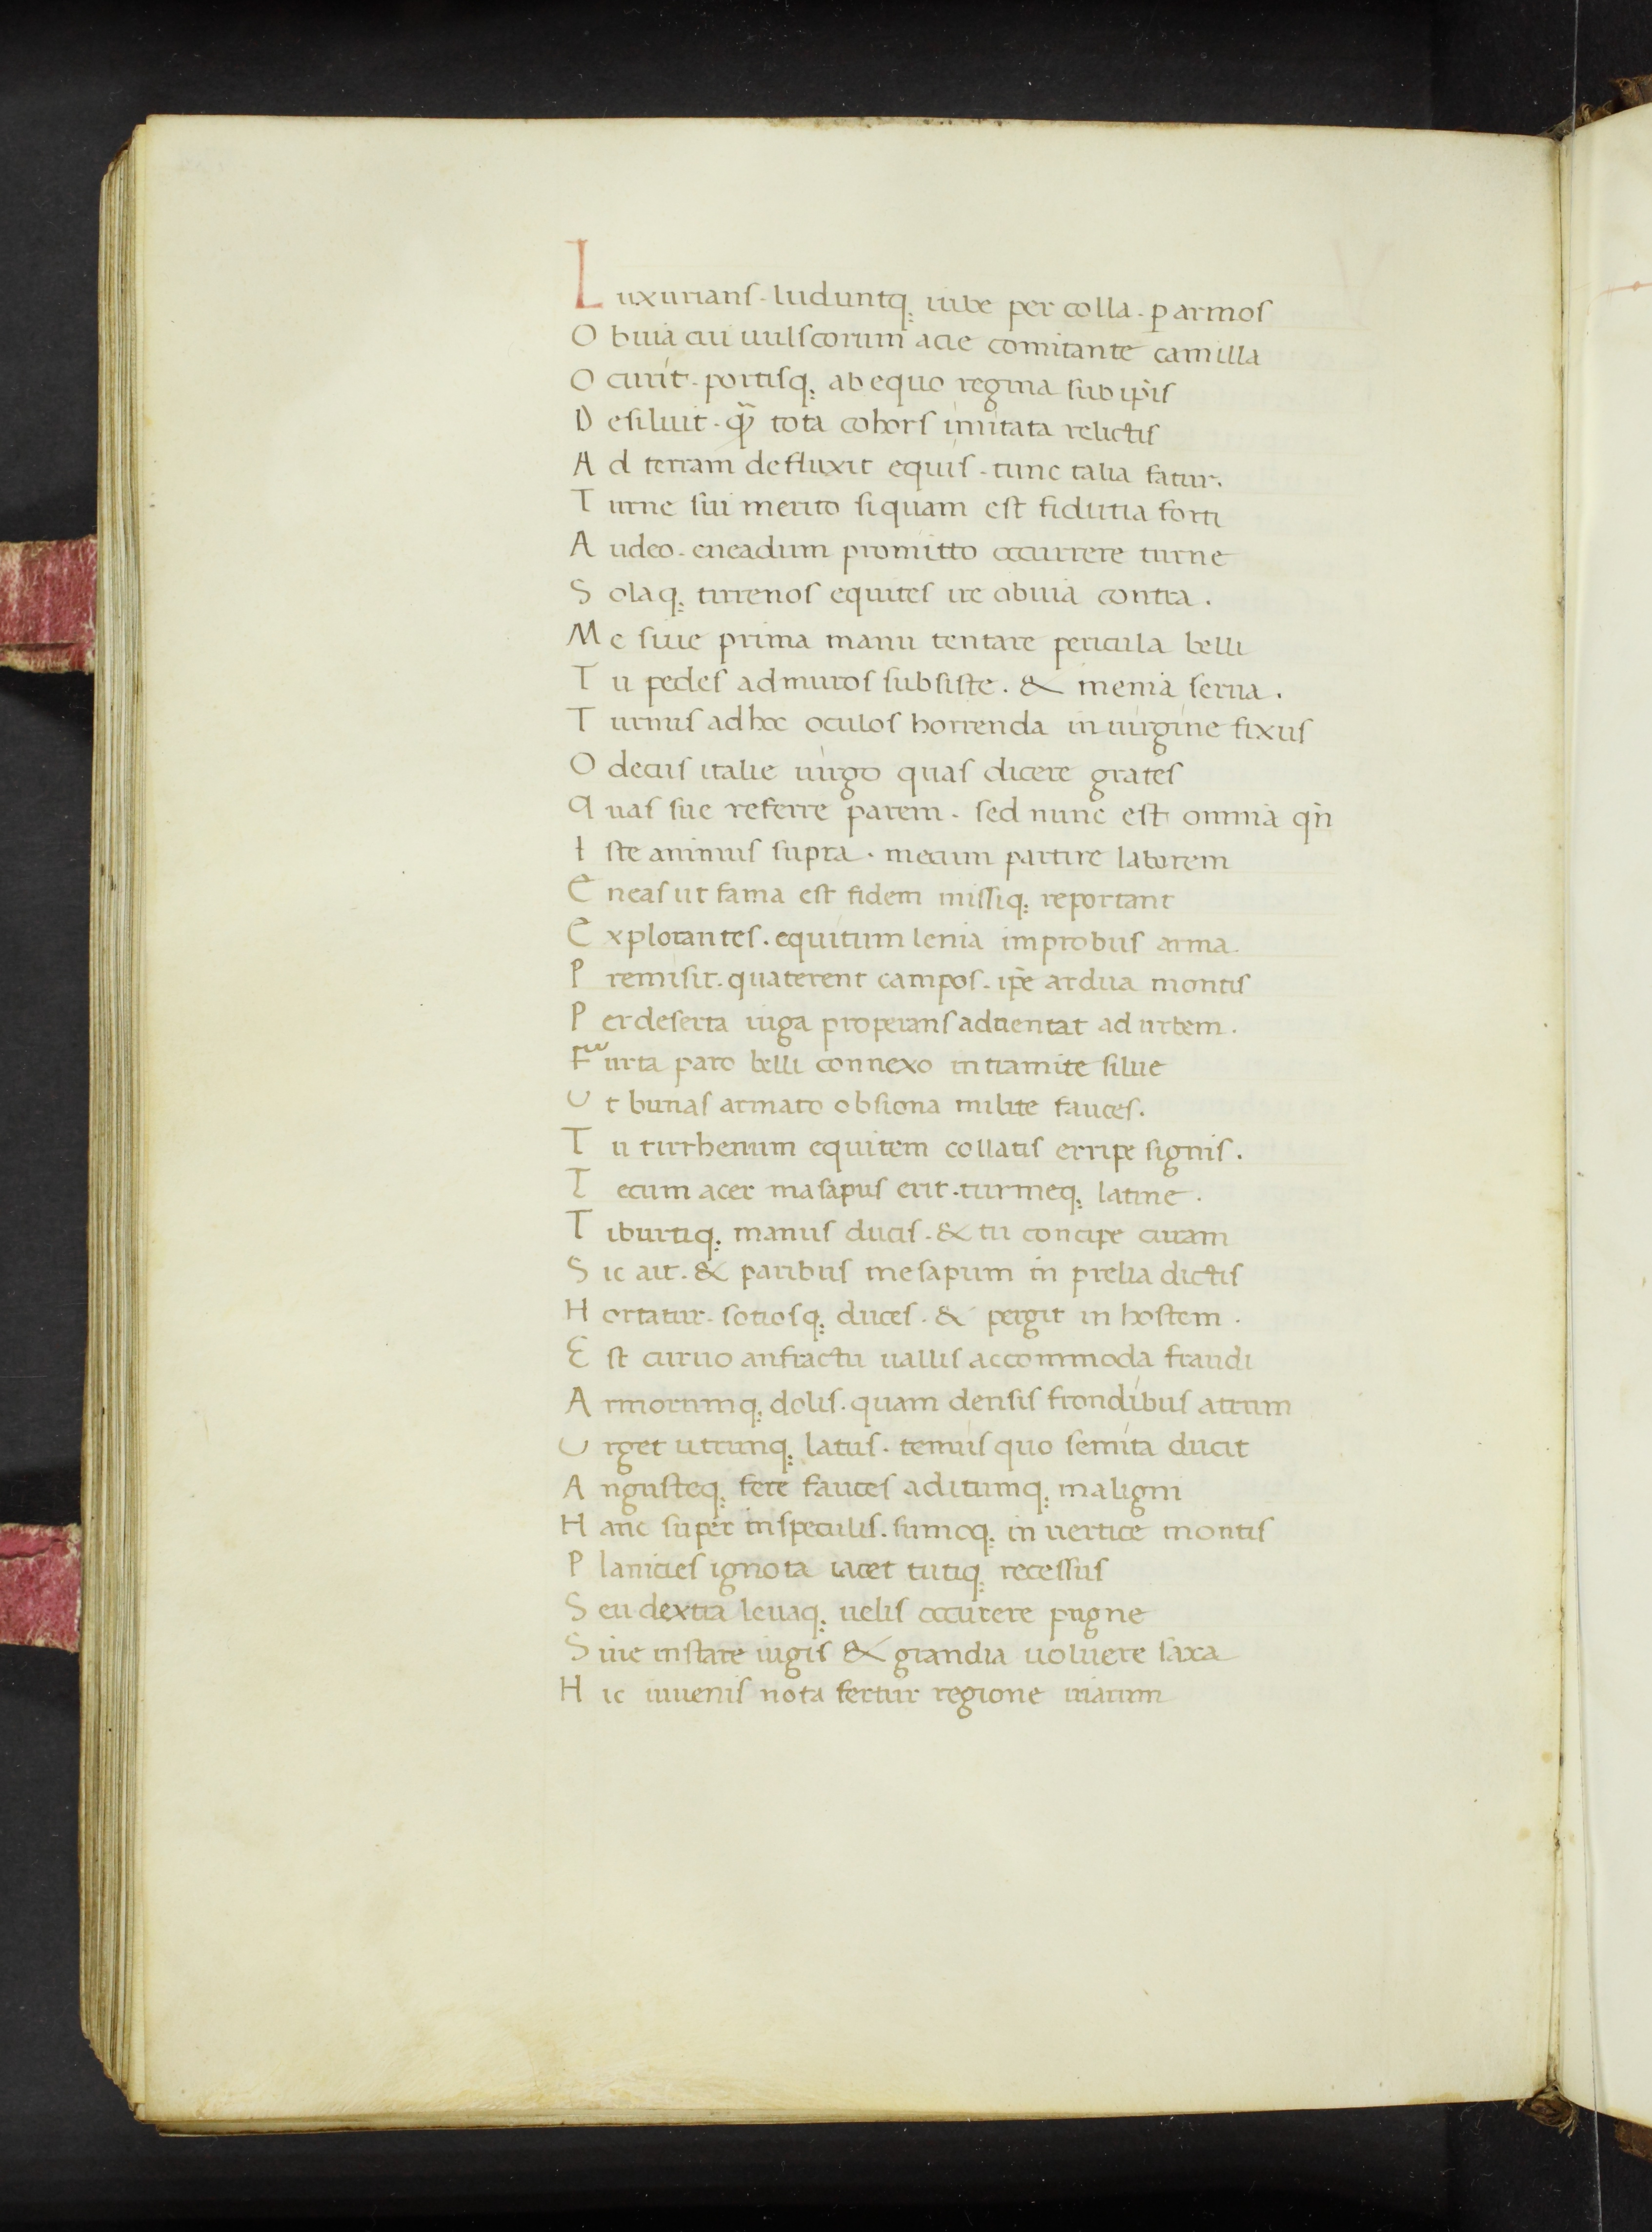 Luxurians. luduntq; iube per colla. p armos
Obuia cui uulscorum acie comitante camilla
Ocurit. portisq; ab equo regina sub ip̄is
Desiluit. quā tota cohors imitata relictis
Ad terram defluxit equis. tunc talia fatur.
Turne sui merito siquam est fidutia forti
Audeo. eneadum promitto occurrere turne
Solaq; tirrenos equites ire obuia contra.
Me siue prima manu tentare pericula belli
Tu pedes ad muros subsiste. & menia serua.
Turnus ad hoc oculos horrenda in uirgine fixus
O decus italie uirgo quas dicere grates
Quas sue referre parem. sed nunc est omnia qn̄
Iste animus supra. mecum partire laborem
Eneas ut fama est fidem missiq; reportant
Explorantes. equitum lenia improbus arma
Premisit. quaterent campos. ip̄e ardua montis
Per deserta iuga properans aduentat ad urbem.
Furta paro belli connexo in tramite silue
Ut bunas armato obsiona milite fauces.
Tu tirrhenum equitem collatis erripe signis.
Tecum acer masapus erit. turmeq; latine.
Tiburtiq; manus ducis. & tu concipe curam
Sic ait. & paribus mesapum in prelia dictis
Hortatur. sotiosq; duces. & pergit in hostem.
Est curuo anfractu uallis accommoda fraudi
Armorumq; dolis. quam densis frondibus atrum
Urget utrunq; latus. temuis quo semita ducit
Angusteq; fere fauces aditumq; maligni
Hanc super in speculis. sumoq; in uertice montis
Planicies ignota iacet tutiq; recessus
Seu dextra leuaq; uelis occurere pugne
Siue instare iugis & grandia uoluere saxa
Hic iuuenis nota fertur regione uiarum